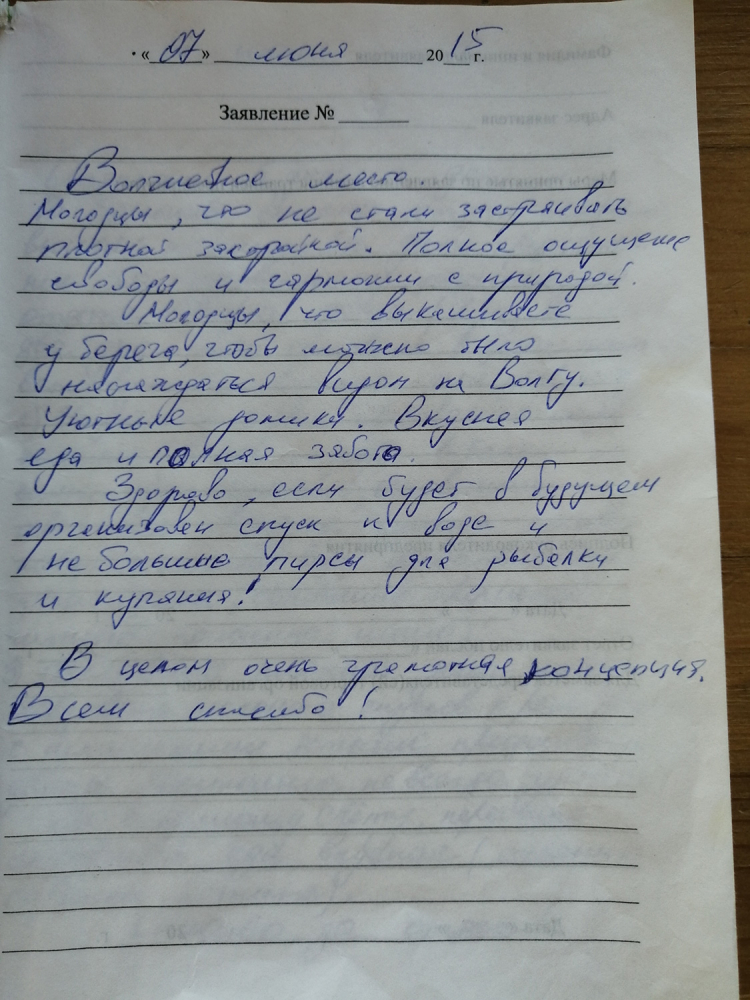 «07» июня 2015 г.
Заявление №
Волшебное место
Молодцы, что не стали застраивать
плотной застройкой. Полное ощущение
свободы и гармонии с природой.
Молодцы, что выкашиваете
у берега, чтобы можно было
наслаждаться видом на Волгу.
Уютные домики. Вкусная
еда и полная забота.
Здорово, если будет в будущем
организован спуск к воде и
не большие пирсы для рыбалки
и купания!
В целом очень грамотная концепция.
Всем спасибо!